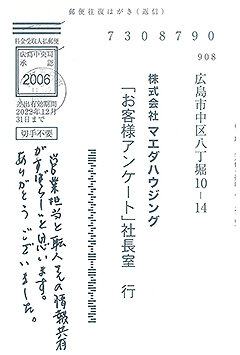 郵便往復はがき(返信)
7308790
908
広島市中区八丁堀10-14
株式会社 マエダハウジング
「お客様アンケート」社長室 行
料金受取人払郵便
広島中央局
承認
2006
差出有効期間
2022年12月
31日まで
切手不要
営業担当と職人さんの情報共有
がすばらしいと思います。
ありがとうございました。